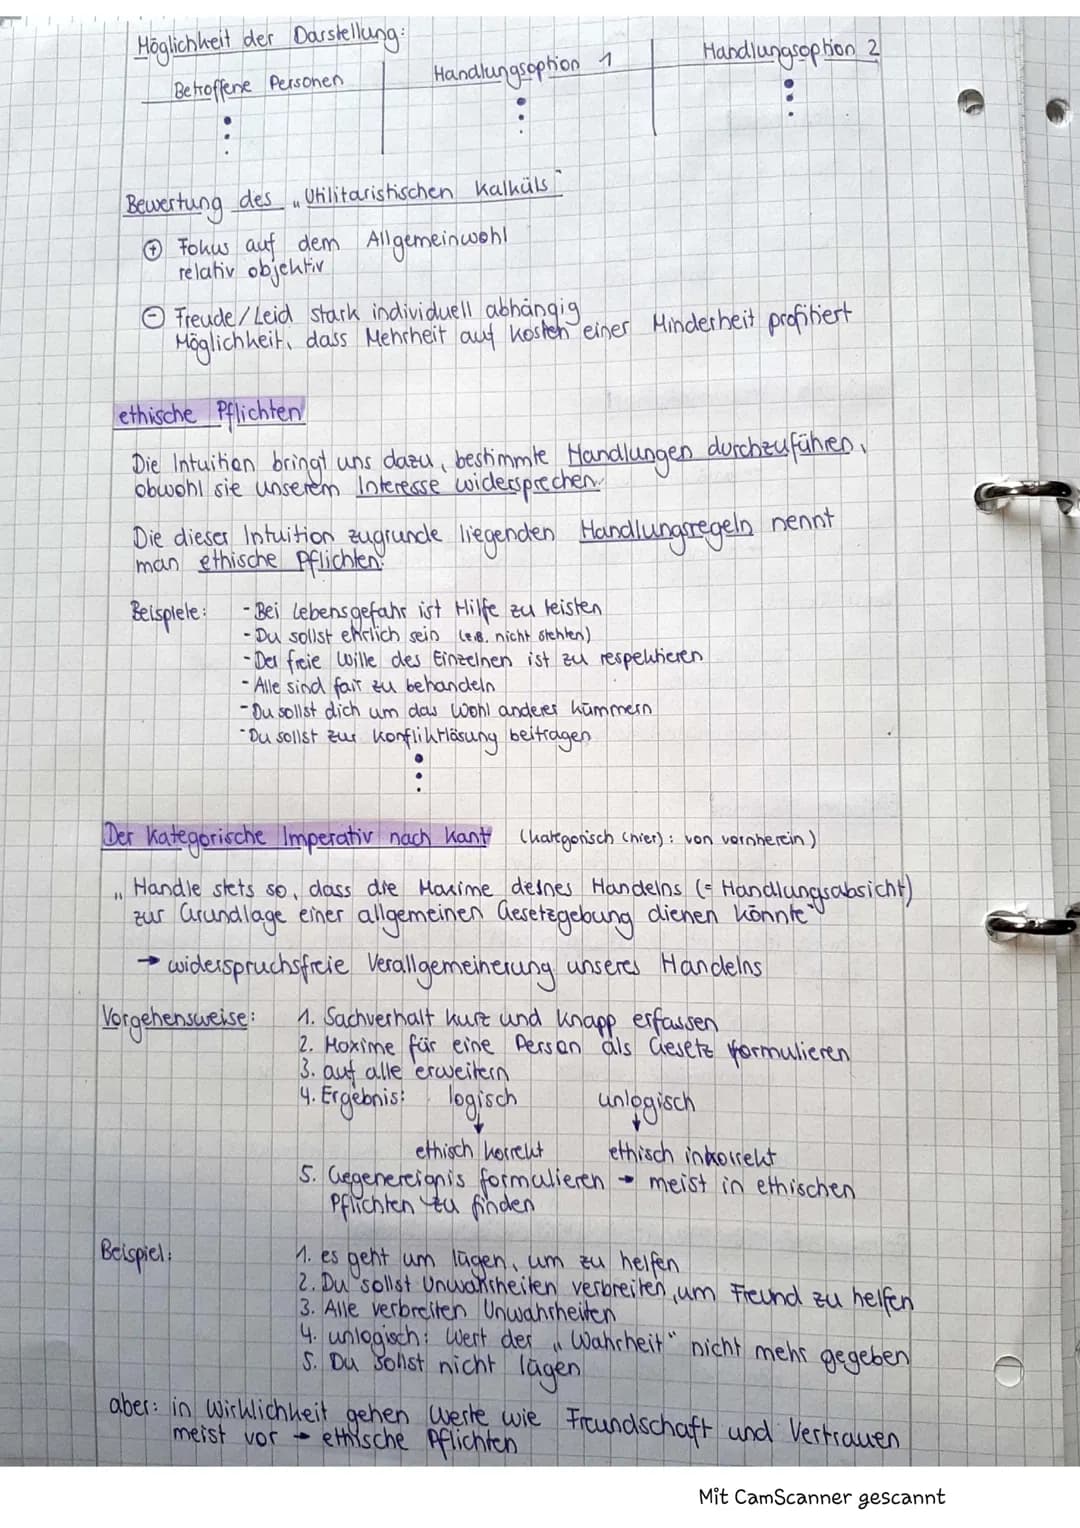 Möglichkeit der Darstellung:
Betroffene Personen
Handlungsoption 1
Handlungsoption 2
Bewertung des „Utilitaristischen Kalküls"
+ Fokus auf dem Allgemeinwohl
relativ objektiv
- Freude/Leid stark individuell abhängig
Möglichkeit, dass Mehrheit auf Kosten einer Minderheit profitiert
ethische Pflichten
Die Intuition bringt uns dazu, bestimmte Handlungen durchzuführen,
obwohl sie unserem Interesse widersprechen.
Die dieser Intuition zugrunde liegenden Handlungsregeln nennt
man ethische Pflichten.
Beispiele: - Bei Lebensgefahr ist Hilfe zu leisten
- Du sollst ehrlich sein (z.B. nicht stehlen)
- Der freie Wille des Einzelnen ist zu respektieren
- Alle sind fair zu behandeln
- Du sollst dich um das Wohl anderer kümmern
- Du sollst zur Konfliktlösung beitragen
Der Kategorische Imperativ nach Kant (kategorisch (hier): von vornherein)
„Handle stets so, dass die Maxime deines Handelns (= Handlungsabsicht)
zur Grundlage einer allgemeinen Gesetzgebung dienen könnte"
→ widerspruchsfreie Verallgemeinerung unseres Handelns
Vorgehensweise: 1. Sachverhalt kurz und knapp erfassen
2. Maxime für eine Person als Gesetz formulieren
3. auf alle erweitern
4. Ergebnis: logisch unlogisch
ethisch korrekt ethisch inkorrekt
5. Gegenereignis formulieren → meist in ethischen
Pflichten zu finden
Beispiel: 1. es geht um lügen, um zu helfen
2. Du sollst Unwahrheiten verbreiten, um Freund zu helfen
3. Alle verbreiten Unwahrheiten
4. unlogisch: Wert der „Wahrheit" nicht mehr gegeben
5. Du sollst nicht lügen
aber: in Wirklichkeit gehen Werte wie Freundschaft und Vertrauen
meist vor → ethische Pflichten
Mit CamScanner gescannt